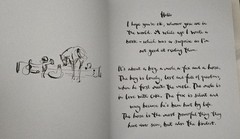 Hello
I hope you're ok, wherever you are in
the world. A while ago I wrote a
book – which was a surprise as I'm
not good at reading them.
It's about a boy, a mole, a fox and a horse.
The boy is lonely, lost and full of questions
when he first meets the mole. The mole is
in love with cake. The fox is silent and
wary because he's been hurt by life.
The horse is the most powerful thing they
have ever seen, but also the kindest.